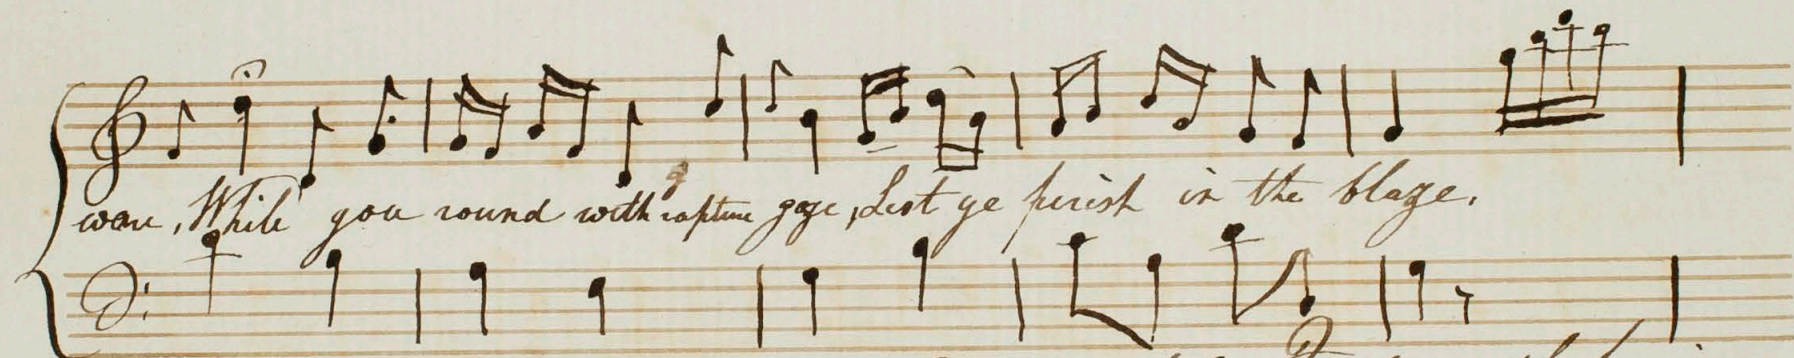 ware, While you round with rapture gaze, Lest ye perish in the blaze.